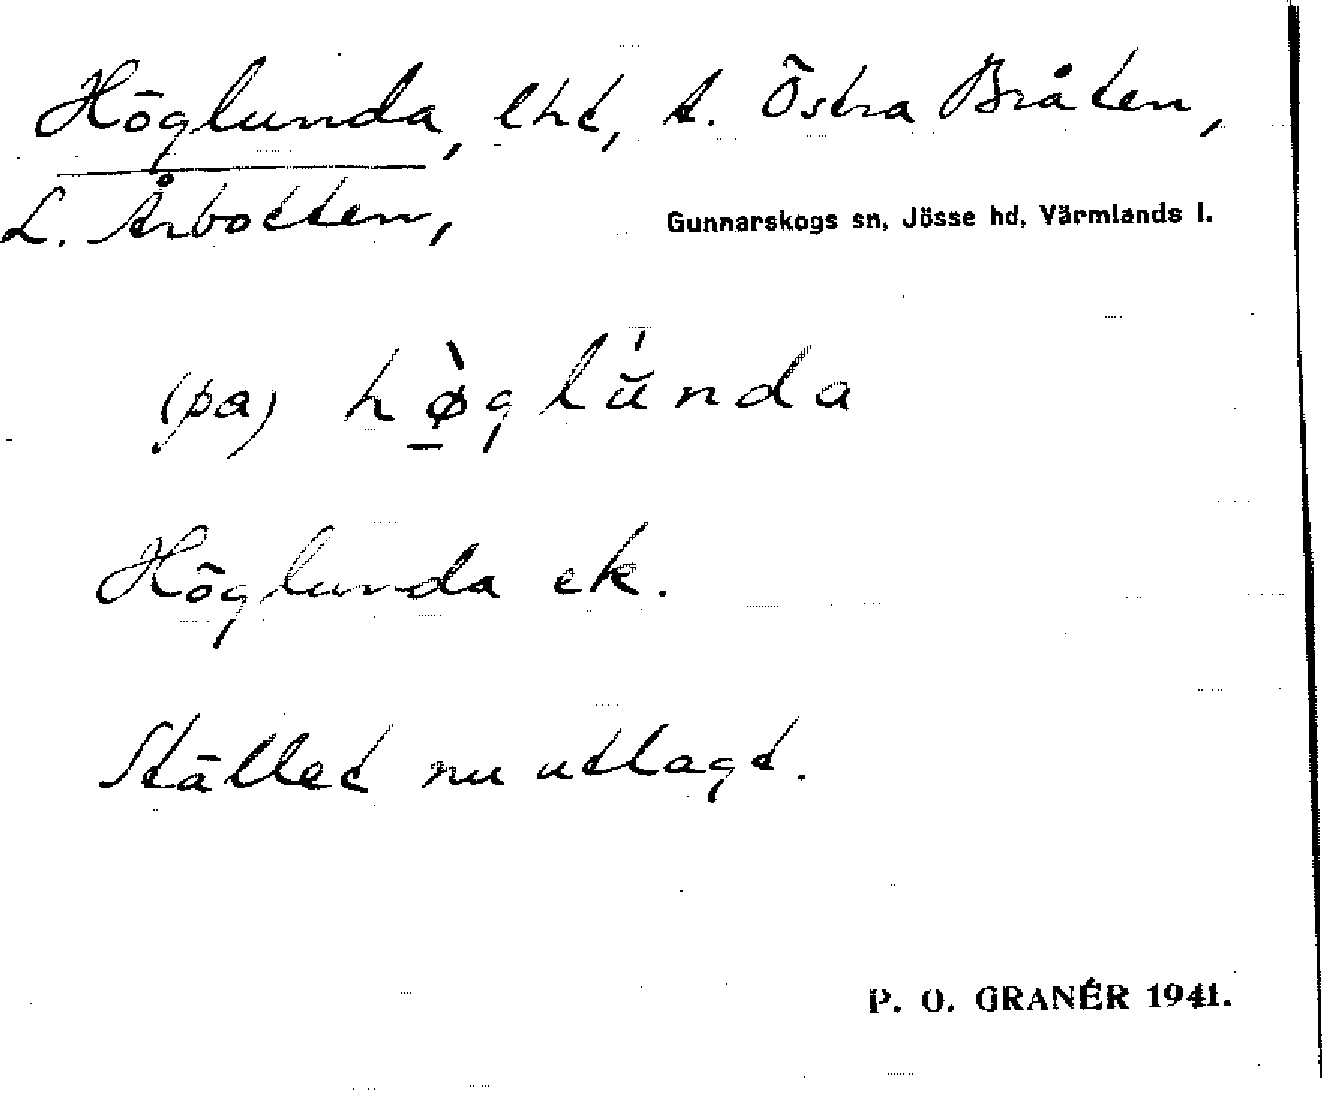 Höglunda, lht, t. Östra Bråten,
L. Årbotten,
Gunnarskogs sn, Jösse hd, Värmlands l.
(pa) hø̠̀glŭ́nda
Höglunda ek.
Stället nu utlagt.
P. O. GRANÉR 1941.